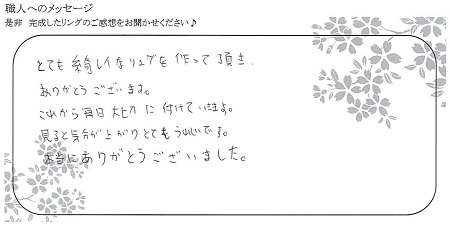 職人へのメッセージ
是非 完成したリングのご感想をお聞かせください♪
とても綺レイなリングを作って頂き、
ありがとうございます。
これから毎日大切に付けていきます。
見ると気分が上がりとてもうれしいです。
本当にありがとうございました。